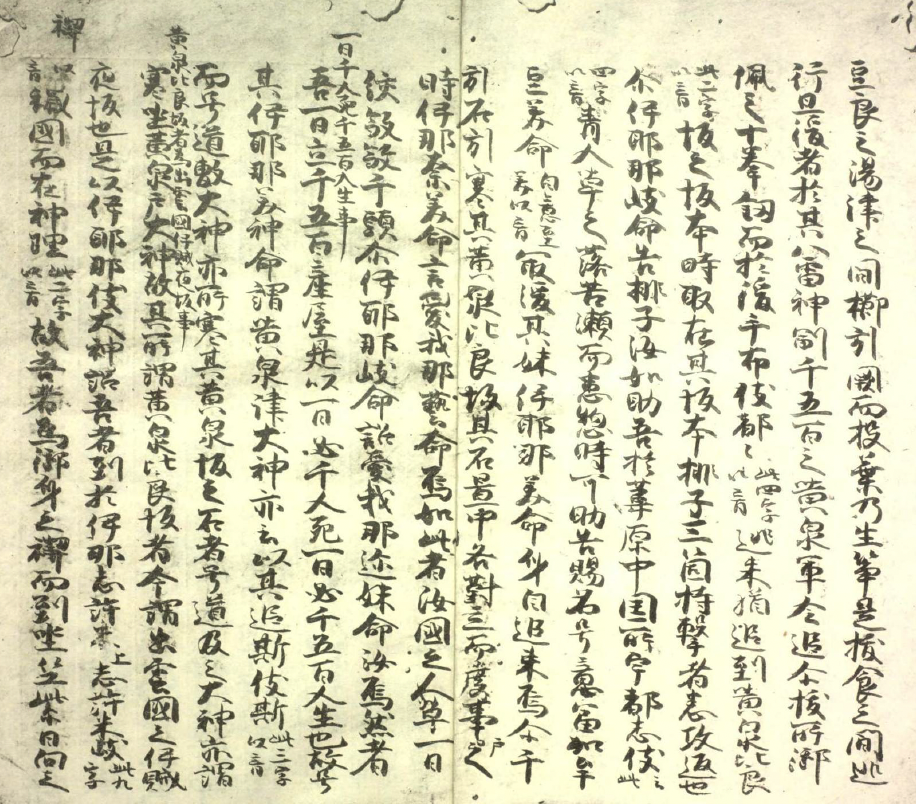 豆良之湯津々間櫛引闕而投棄乃生笋是拔食之間逃
行且後者於其八雷神副千五百之黄泉軍令追尒拔所御
佩之十拳釼而於後手布伎都々此四字以音逃来猶追到黄泉比良
此二字以音坂之坂本時取在其坂本桃子三箇持撃者悉攻返也
尒伊耶那岐命告桃子汝如助吾於葦原中国所宇都志伎此
四字以音青人草之落苦瀬而患惚時可助告賜名号意富加牟
豆美命自意至美以音最後其妹伊耶那美命身自追来焉尒千
引石引塞其黄泉比良坂其石置中各對立而度事戸之
時伊耶那美命言愛我那勢命為如此者汝國之人草一日
絞殺千頭尒伊耶那岐命詔愛我那迩妹命汝為然者
一日千人死千五百人生事
吾一日立千五百産屋是以一日必千人死一日必千五百人生也故号
其伊耶那美神命謂黄泉津大神亦云以其追斯伎斯此三字以音
而号道敷大神亦所塞其黄泉坂之石者号道反之大神亦謂
黄泉比良坂者為出雲國伊賦夜坂事
塞坐黄泉戸大神故其所謂黄泉比良坂者今謂出雲國之伊賦
夜坂也是以伊耶那伎大神詔吾者到於伊那志許米上志許米岐此九字
禊
以音穢國而在祁理此二字以音故吾者為御身之禊而到坐竺紫日向之